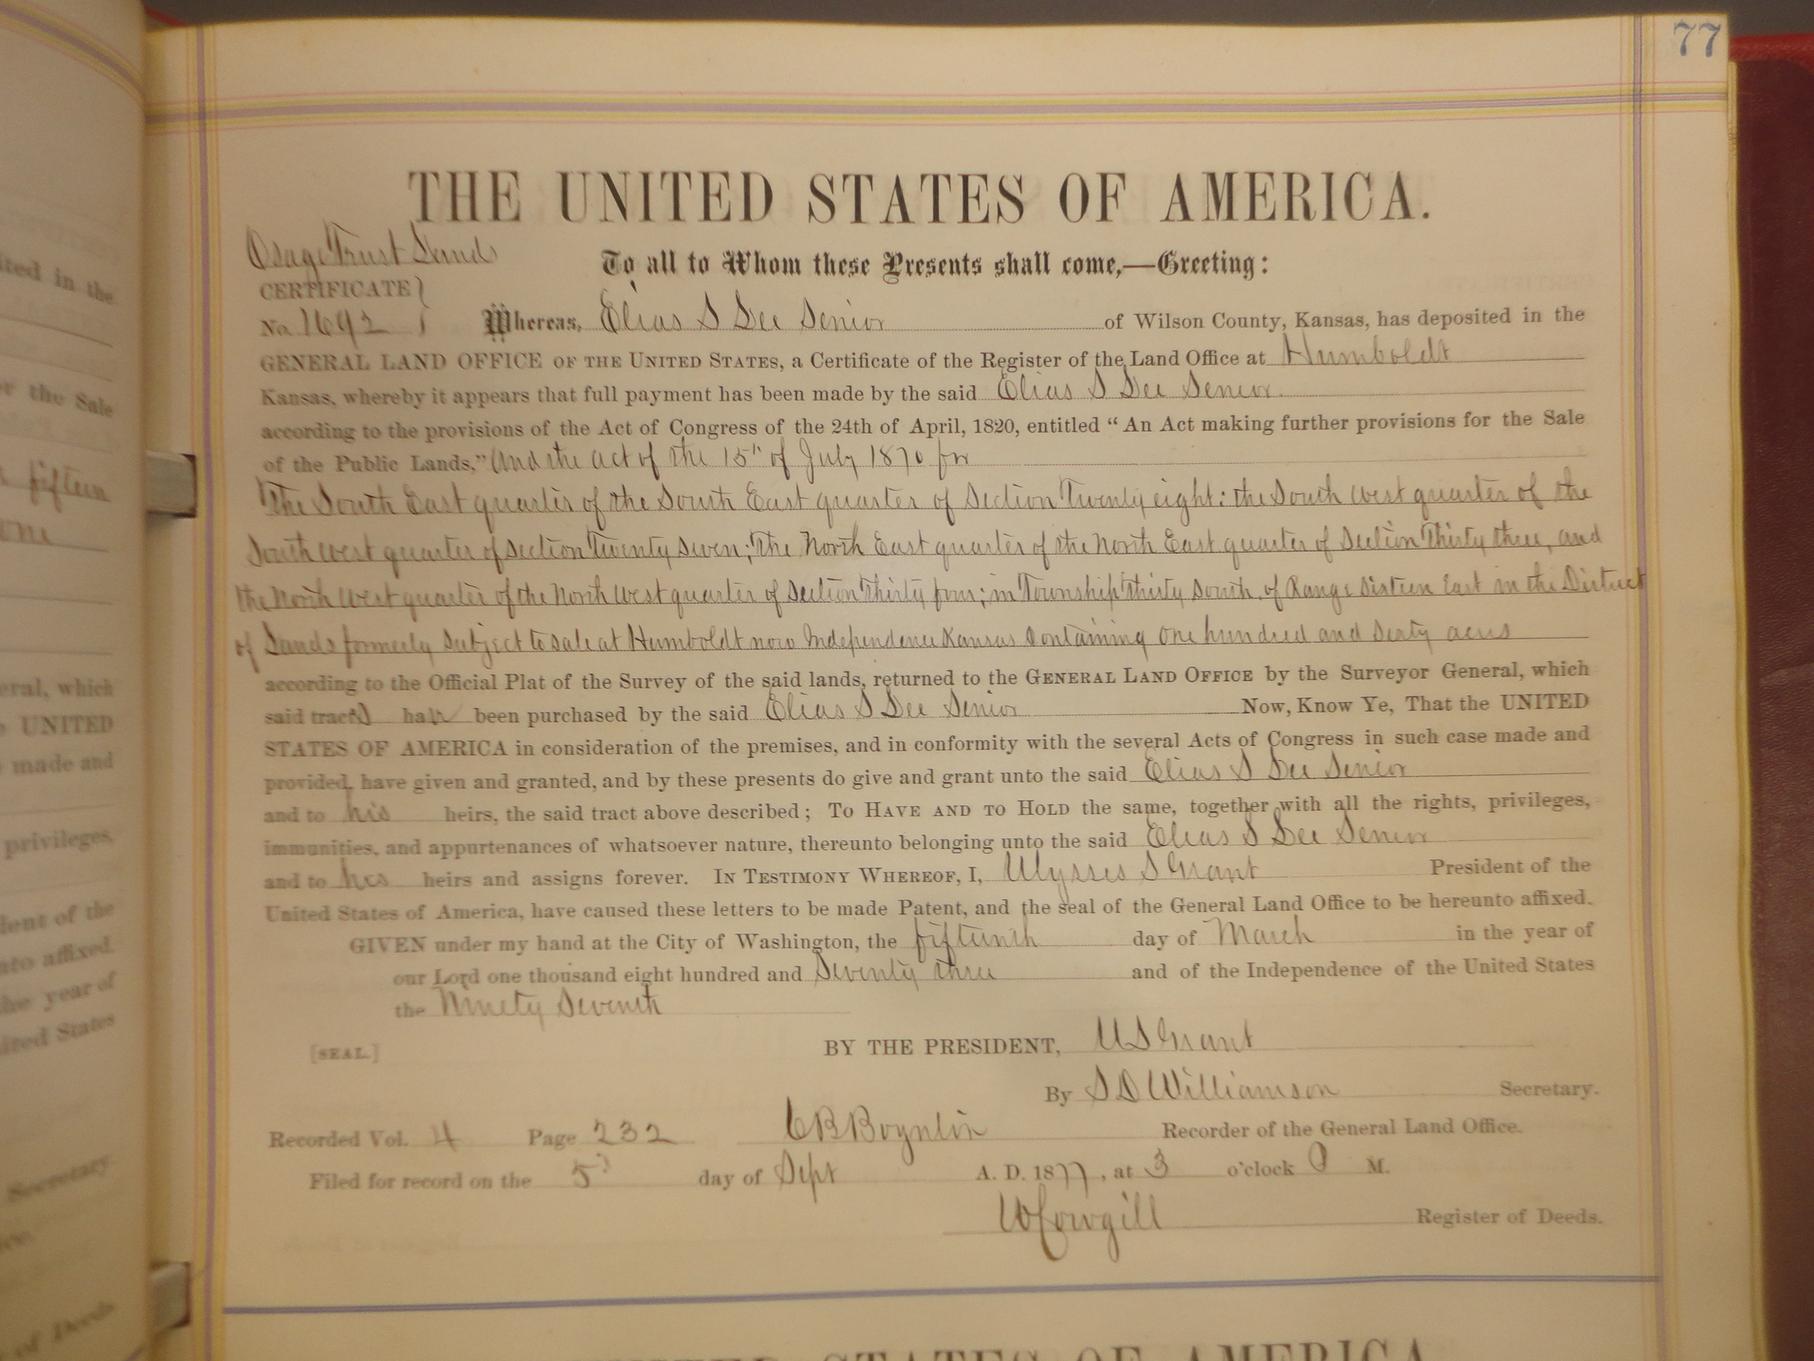 77
THE UNITED STATES OF AMERICA.
Osage Trust Lands
To all to Whom these Presents shall come,—Greeting:
CERTIFICATE }
No. 1692 } Whereas, Elias S Dee Senior of Wilson County, Kansas, has deposited in the
GENERAL LAND OFFICE OF THE UNITED STATES, a Certificate of the Register of the Land Office at Humboldt
Kansas, whereby it appears that full payment has been made by the said Elias S Dee Senior.
according to the provisions of the Act of Congress of the 24th of April, 1820, entitled "An Act making further provisions for the Sale
of the Public Lands," and the act of the 15" of July 1870 for
The South East quarter of the South East quarter of Section Twenty eight: the South West quarter of the
South West quarter of Section Twenty Seven; The North East quarter of the North East quarter of Section Thirty three, and
the North West quarter of the North West quarter of Section Thirty four; in Township Thirty South, of Range Sixteen East in the District
of Lands formerly Subject to sale at Humboldt now Independence Kansas Containing One hundred and Sixty acres
according to the Official Plat of the Survey of the said lands, returned to the GENERAL LAND OFFICE by the Surveyor General, which
said tracts have been purchased by the said Elias S Dee Senior Now, Know Ye, That the UNITED
STATES OF AMERICA in consideration of the premises, and in conformity with the several Acts of Congress in such case made and
provided, have given and granted, and by these presents do give and grant unto the said Elias S Dee Senior
and to his heirs, the said tract above described; TO HAVE AND TO HOLD the same, together with all the rights, privileges,
immunities, and appurtenances of whatsoever nature, thereunto belonging unto the said Elias S Dee Senior
and to his heirs and assigns forever. IN TESTIMONY WHEREOF, I, Ulysses S Grant President of the
United States of America, have caused these letters to be made Patent, and the seal of the General Land Office to be hereunto affixed.
GIVEN under my hand at the City of Washington, the fifteenth day of March in the year of
our Lord one thousand eight hundred and Seventy three and of the Independence of the United States
the Ninety Seventh
[SEAL.] BY THE PRESIDENT, U S Grant
By S D Williamson Secretary.
Recorded Vol. 4 Page 232 C B Boynton Recorder of the General Land Office.
Filed for record on the 5" day of Sept A. D. 1877, at 3 o'clock P M.
W Cowgill Register of Deeds.
UNITED STATES OF AMERICA